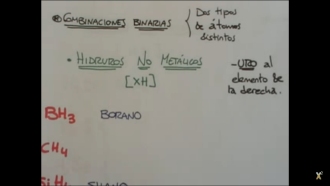 COMBINACIONES BINARIAS
Dos tipos
de átomos
distintos
HIDRUROS NO METÁLICOS
[XH]
-URO al
elemento de
la derecha.
BH3 BORANO
CH4
SiH4 SILANO